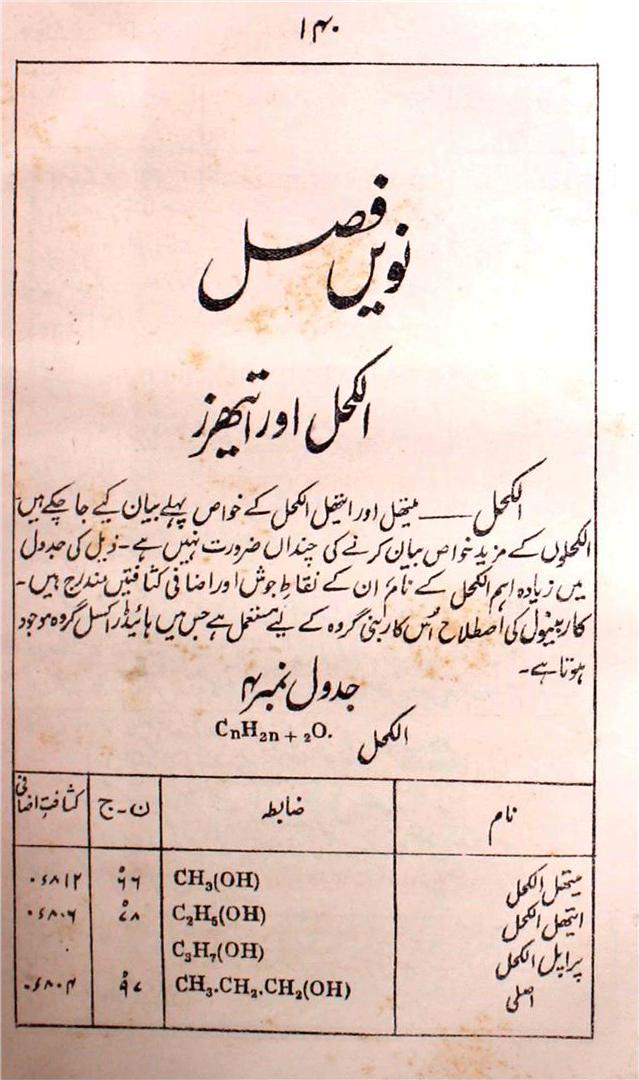 ۱۴۰
نویں فصل
الکحل اور ایتھرز
الکحل —— میتھل اور ایتھل الکحل کے خواص پہلے بیان کیے جا چکے ہیں
الکحلوں کے مزید خواص بیان کرنے کی چنداں ضرورت نہیں ہے۔ ذیل کی جدول
میں زیادہ اہم الکحل کے نام، ان کے نقاطِ جوش اور اضافی کثافتیں مندرج ہیں۔
کاربینول کی اصطلاح اُس کاربنی گروہ کے لیے مستعمل ہے جس میں ہائیڈراکسل گروہ موجود
ہوتا ہے۔
جدول نمبر ۴
الکحل CnH2n + 2O.
نام ضابطہ ن۔ج کثافتِ اضافی
میتھل الکحل CH3(OH) ۶۶° ۰٫۸۱۲
ایتھل الکحل C2H5(OH) ۷۸° ۰٫۸۰۶
پراپل الکحل C3H7(OH)
اصلی CH3.CH2.CH2(OH) ۹۷° ۰٫۸۰۴